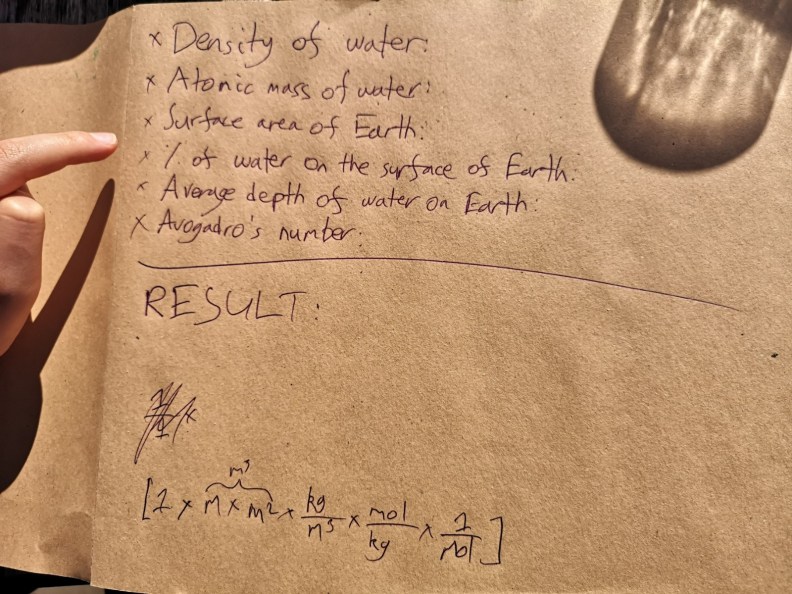 x Density of water:
x Atomic mass of water:
x Surface area of Earth:
x % of water on the surface of Earth:
x Average depth of water on Earth:
x Avogadro's number:
RESULT:
m³
[1 x m x m² x kg/m³ x mol/kg x 1/mol]